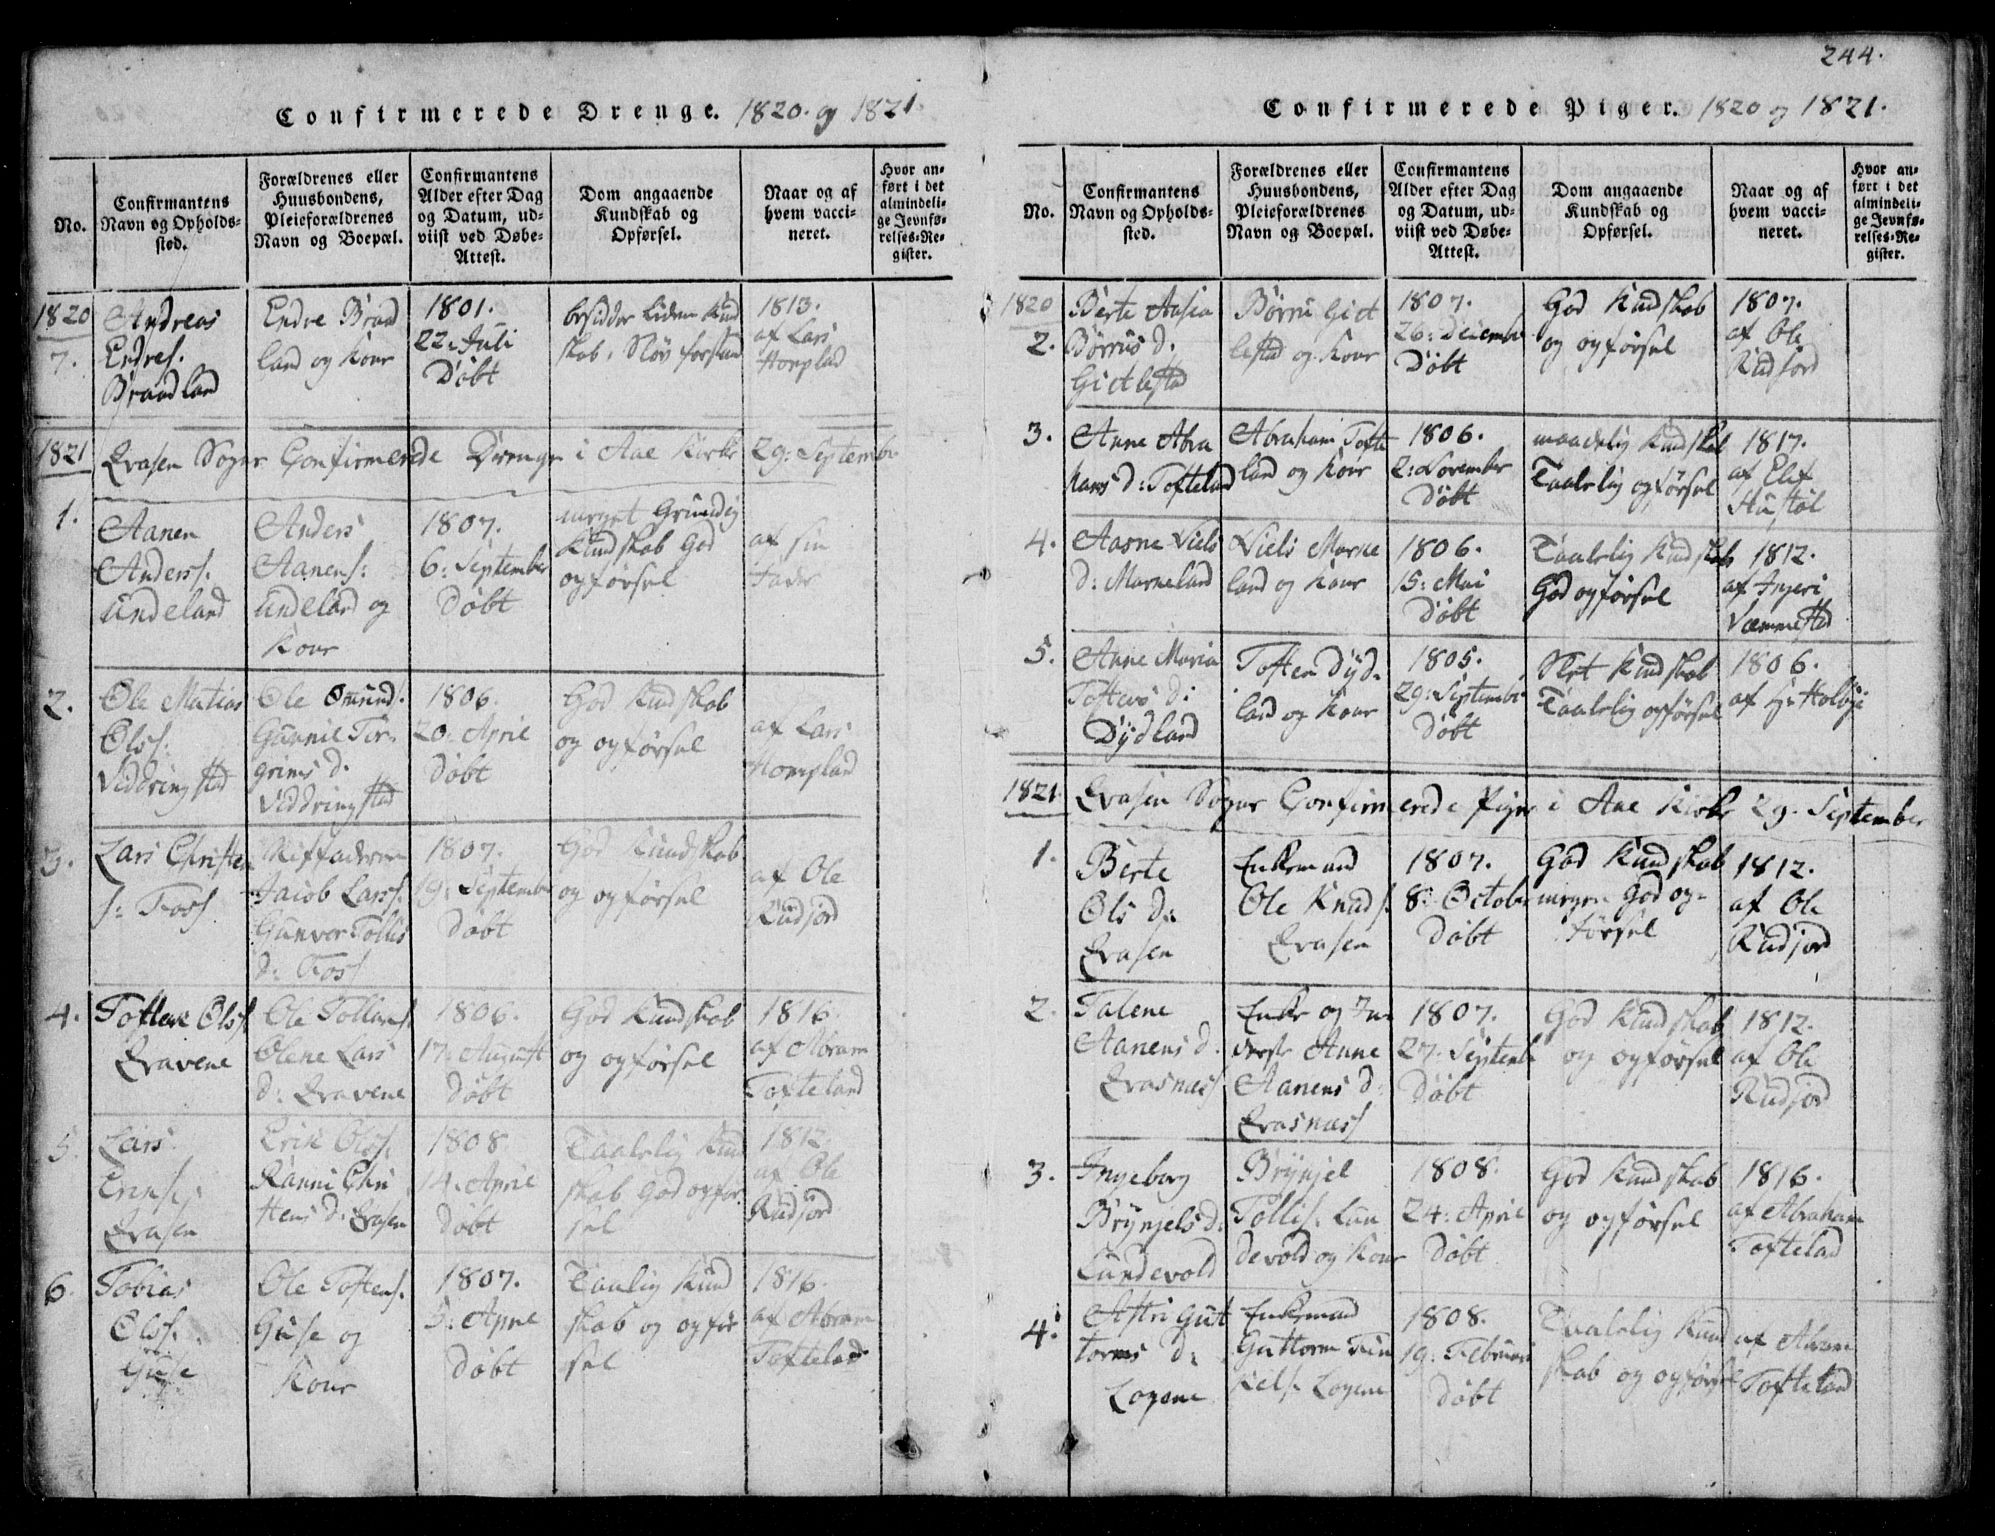 244.
Confirmerede Drenge. 1820. og 1821.
No.
Confirmantens
Navn og Opholds-
sted.
Forældrenes eller
Huusbondens,
Pleieforældrenes
Navn og Boepæl.
Confirmantens
Alder efter Dag
og Datum, ud-
viist ved Døbe-
Attest.
Dom angaaende
Kundskab og
Opførsel.
Naar og af
hvem vacci-
neret.
Hvor an-
ført i det
almindeli-
ge Jevnfø-
relses-Re-
gister.
1820
7.
Andreas
Endres.
Braadland
Endre Braad
land og Kone
1801.
22: Juli
Døbt
besidder liden Kund
skab, Sløv forstand
1813.
af Lars
Homplad
1821
Qvasen Sogns Confirmerede Drenge i Aae Kirke 29: Septembr
1.
Aanen
Anders.
Undeland
Anders
Aanens:
Undeland og
Kone
1807.
6: September
Døbt
meget Grundig
Kundskab God
opførsel
af sin
Fader
2.
Ole Matias
Ols:
Viddringstad
Ole Omund.
Gunnil Tor-
grims d.
Viddringstad
1806.
20: April
døbt
God Kundskab
og opførsel
af Lars
Homplad
3.
Lars Christen
s: Foss
Stiffaderen
Jacob Larss.
Gunvor Tollis
d: Foss
1807.
19: September
Døbt
God Kundskab
og opførsel
af Ole
Rudjord
4.
Tosten Ols.
Qvavene
Ole Tollevs.
Olene Lars
d: Qvavene
1806.
17: August
Døbt
God Kundskab
og opførsel
1816.
af Abram
Tofteland
5.
Lars
Eriks.
Qvasen
Erik Ols:
Ranni Chri
stens d: Qvasen
1808.
14: April
Døbt
Taalelig Kund
skab God opfør
sel
1812.
af Ole
Rudjord
6.
Tobias
Ols.
Guse
Ole Tostens.
Guse og
Kone
1807.
5: April
Døbt
Taalig Kund
skab og opfør
sel
1816.
af Abram
Tofteland
Confirmerede Piger. 1820 og 1821.
No.
Confirmantens
Navn og Opholds-
sted.
Forældrenes eller
Huusbondens,
Pleieforældrenes
Navn og Boepæl.
Confirmantens
Alder efter Dag
og Datum, ud-
viist ved Døbe-
Attest.
Dom angaaende
Kundskab og
Opførsel.
Naar og af
hvem vacci-
neret.
Hvor an-
ført i det
almindeli-
ge Jevnfø-
relses-Re-
gister.
1820
2.
Berte Aasia
Børrus d.
Gietlestad
Børru Giet
lestad og Kone
1807.
26: Decembr
Døbt
God Kudskab
og opførsel
1807.
af Ole
Rudjord
3.
Anne Abra
hams d: Tofteland
Abraham Tofte
land og Kone
1806.
2: November
Døbt
maadelig Kundskab
Taalelig opførsel
1817.
af Elef
Hustøl
4.
Aasne Niels
d: Marneland
Niels Marne
land og Kone
1806.
15: Mai
Døbt
Taalelig Kundskab
God opførsel
1812.
af Injeri
Væmmestad
5.
Anne Maria
Tostens d:
Dydland
Tosten Dyd-
land og Kone
1805.
29: Septembr
Døbt
Slet Kundskab
Taalelig opførsel
1806.
af Hr Holbye
1821.
Qvasen Sogns Confirmerede Piger i Aae Kirke 29. September
1.
Berte
Ols d:
Qvasen
Enkemand
Ole Knuds.
Qvasen
1807.
8: October
Døbt
God Kundskab
megen God op-
førsel
1812.
af Ole
Rudjord
2.
Talene
Aanens d.
Qvasnæs
Enke og In
derste Anne
Aanens d:
Qvasnæs
1807.
27: Septembr
Døbt
God Kundskab
og opførsel
1812.
af Ole
Rudjord
3.
Ingeborg
Brynjels d:
Lundevold
Brynjel
Tollis: Lun
devold og Kone
1808.
24: April
Døbt
God Kundskab
og opførsel
1816.
af Abraham
Toftelad
4.
Astri Gut
torms d:
Logene
Enkemand
Guttorm Tin
Kels. Logene
1808.
19: Februar
Døbt
Taalelig Kund
skab og opførsel
af Abram
Tofteland